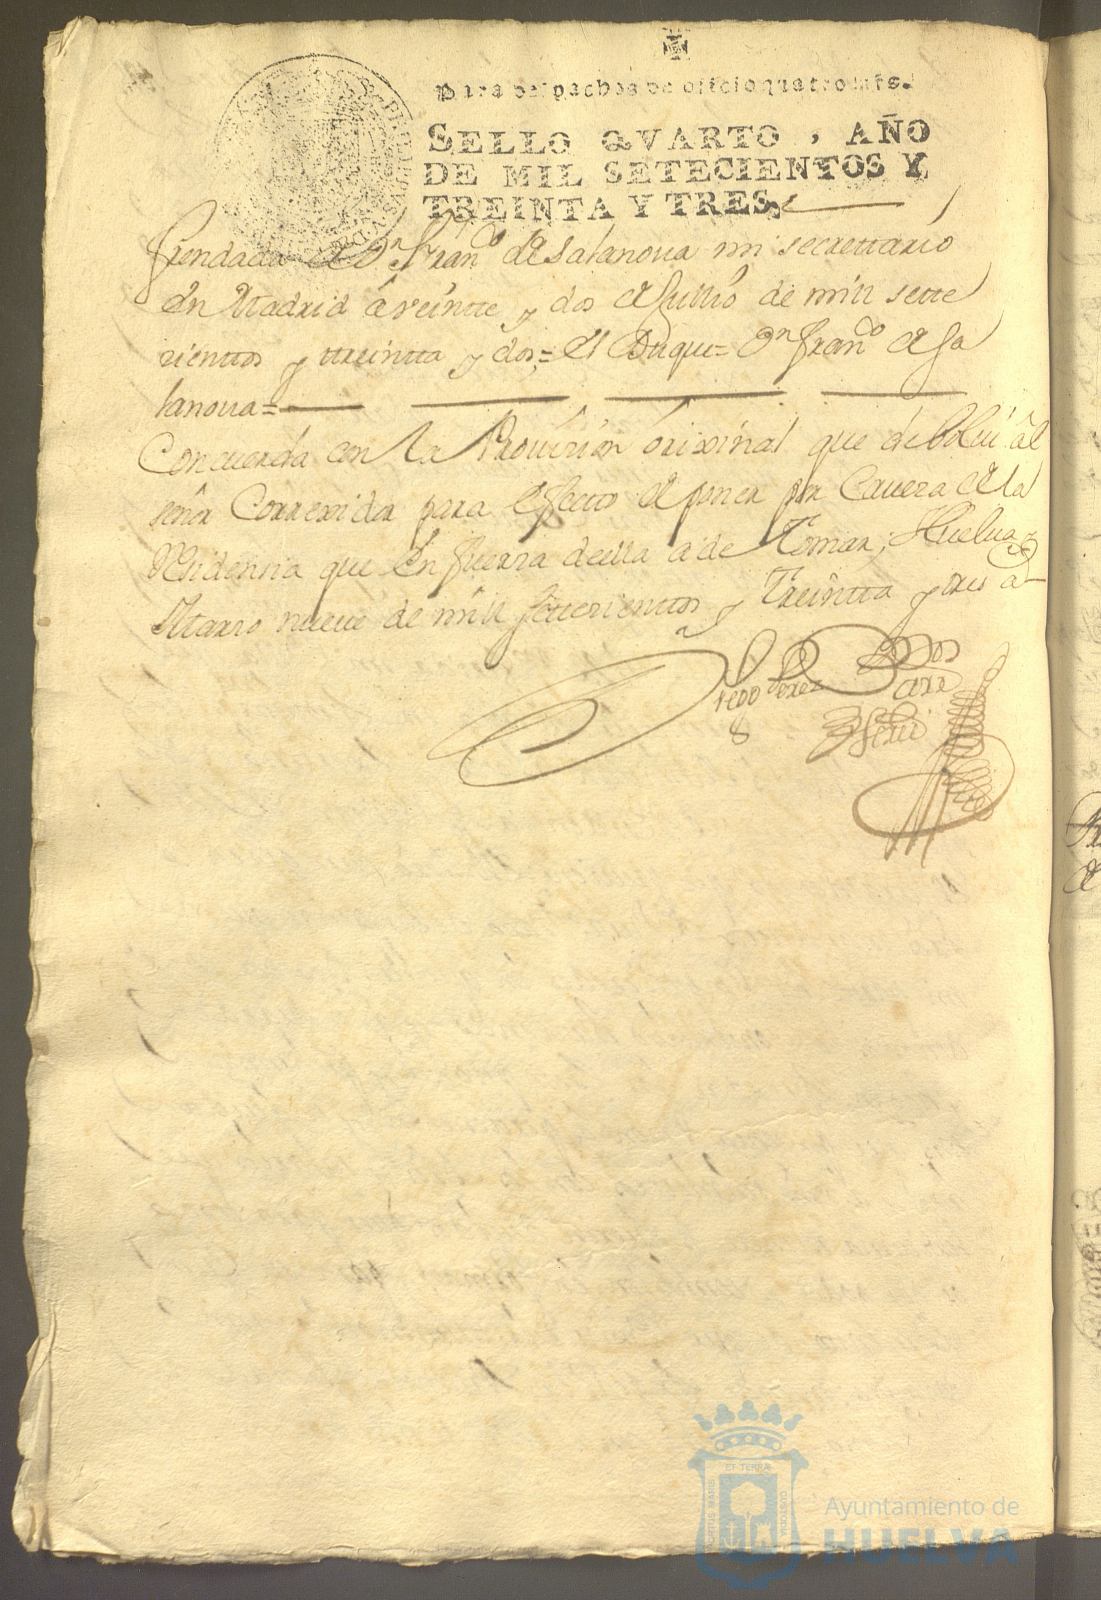 Para despachos de oficio quatro mrs.
SELLO QVARTO, AÑO
DE MIL SETECIENTOS Y
TREINTA Y TRES.
frendada de Dn. franco. de salanova mi secrettario
En Madrid â veintte y dos de Jullio de mill sette
zienttos y ttreintta y dos = El Duque = Dn. franco. de sa
lanova =
Concuerda con la Provision orixinal que debolui al
señor Correxidor para efecto de poner por Caveza de la
Residensia que En fuerza de ella a de Tomar, Huelva y
Marzo nueve de mill settezienttos y Treintta y tres a
Diego Perez
essno
ET TERRÆ
PORTUS MARIS
CUSTODIA
Ayuntamiento de
HUELVA